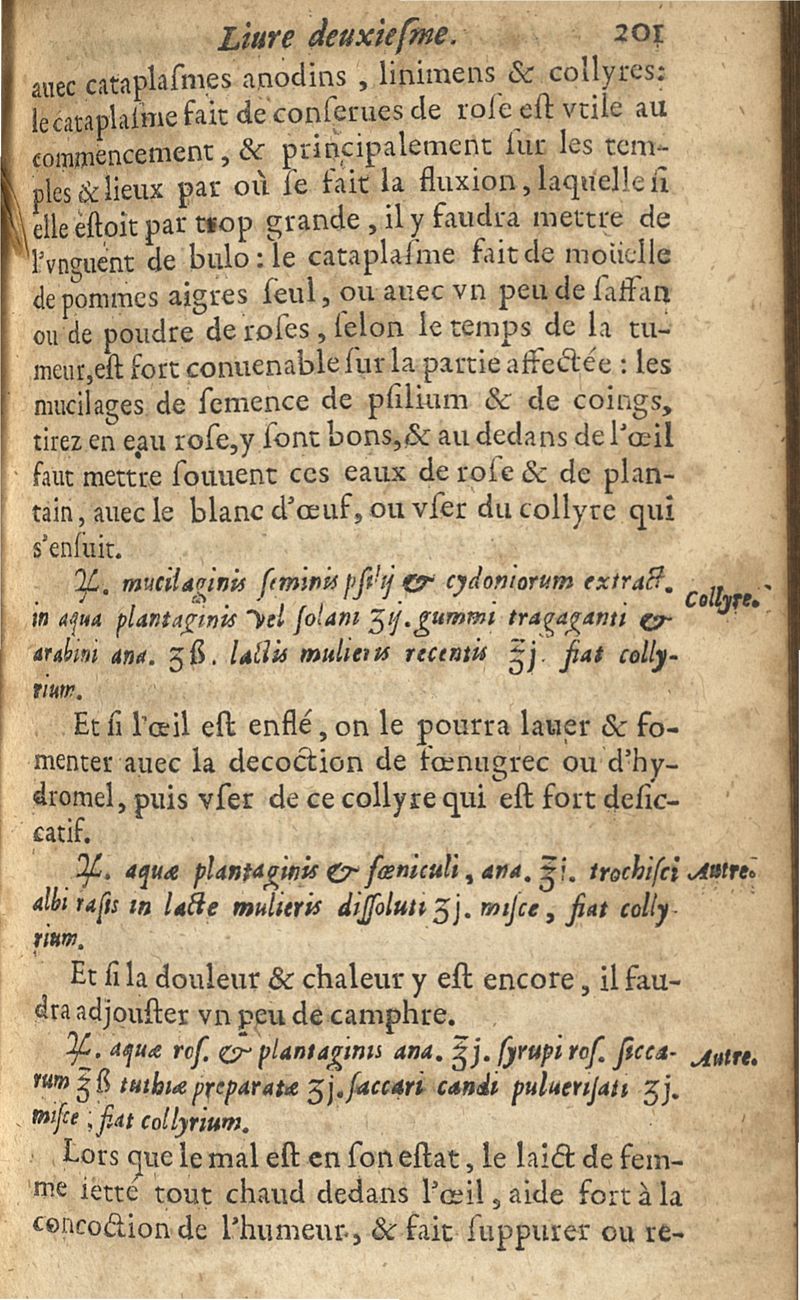 Liure deuxieſme. 201
auec cataplaſmes anodins , linimens & collyres:
le cataplaſme fait de conſerues de roſe eſt vtile au
commencement , & principalement ſur les tem-
ples & lieux par où ſe fait la fluxion, laquelle ſi
elle eſtoit par trop grande , il y faudra mettre de
l'vnguent de bulo : le cataplaſme fait de moüelle
de pommes aigres ſeul, ou auec vn peu de ſaffan
ou de poudre de roſes , ſelon le temps de la tu-
meur, eſt fort conuenable ſur la partie affectée : les
mucilages de ſemence de pſilium & de coings,
tirez en eau roſe, y ſont bons, & au dedans de l'œil
faut mettre ſouuent ces eaux de roſe & de plan-
tain, auec le blanc d'œuf, ou vſer du collyre qui
s'enſuit.
♃. mucilaginis ſeminis pſilij & cydoniorum extract. Collyre.
in aqua plantaginis vel ſolani ʒij. gummi tragaganti &
arabini ana. ʒß. lactis mulieris recentis ℥j. fiat colly-
rium.
Et ſi l'œil eſt enflé, on le pourra lauer & fo-
menter auec la decoction de fœnugrec ou d'hy-
dromel, puis vſer de ce collyre qui eſt fort deſic-
catif.
♃. aquæ plantaginis & fœniculi, ana. ℥j. trochiſci Autre.
albi raſis in lacte mulieris diſſoluti ʒj. miſce, fiat colly-
rium.
Et ſi la douleur & chaleur y eſt encore, il fau-
dra adjouſter vn peu de camphre.
♃. aquæ roſ. & plantaginis ana. ℥j. ſyrupi roſ. ſicca- Autre.
rum ℥ß tuthiæ preparatæ ʒj. ſaccari candi pulueriſati ʒj.
miſce, fiat collyrium.
Lors que le mal eſt en ſon eſtat, le laict de fem-
me ietté tout chaud dedans l'œil, aide fort à la
concoction de l'humeur, & fait ſuppurer ou re-